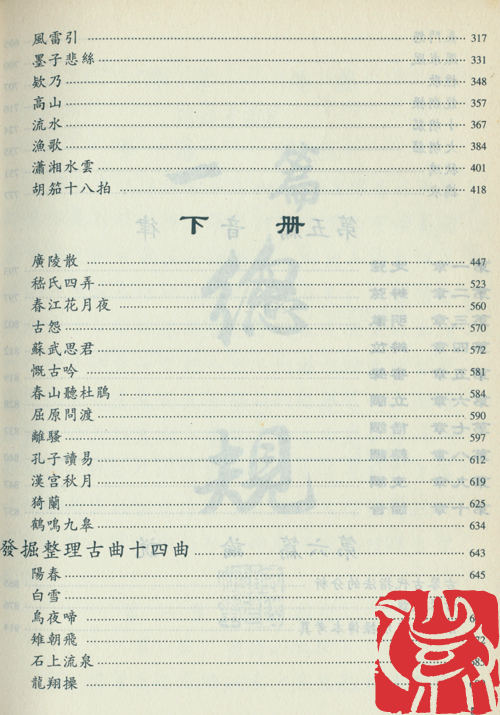 風雷引 317
墨子悲絲 331
欸乃 348
高山 357
流水 367
漁歌 384
瀟湘水雲 401
胡笳十八拍 418
下 册
廣陵散 447
嵇氏四弄 523
春江花月夜 560
古怨 570
蘇武思君 572
慨古吟 581
春山聽杜鵑 584
屈原問渡 590
離騷 597
孔子讀易 612
漢宮秋月 619
猗蘭 625
鶴鳴九皋 634
發掘整理古曲十四曲 643
陽春 645
白雪
烏夜啼
雉朝飛
石上流泉
龍翔操